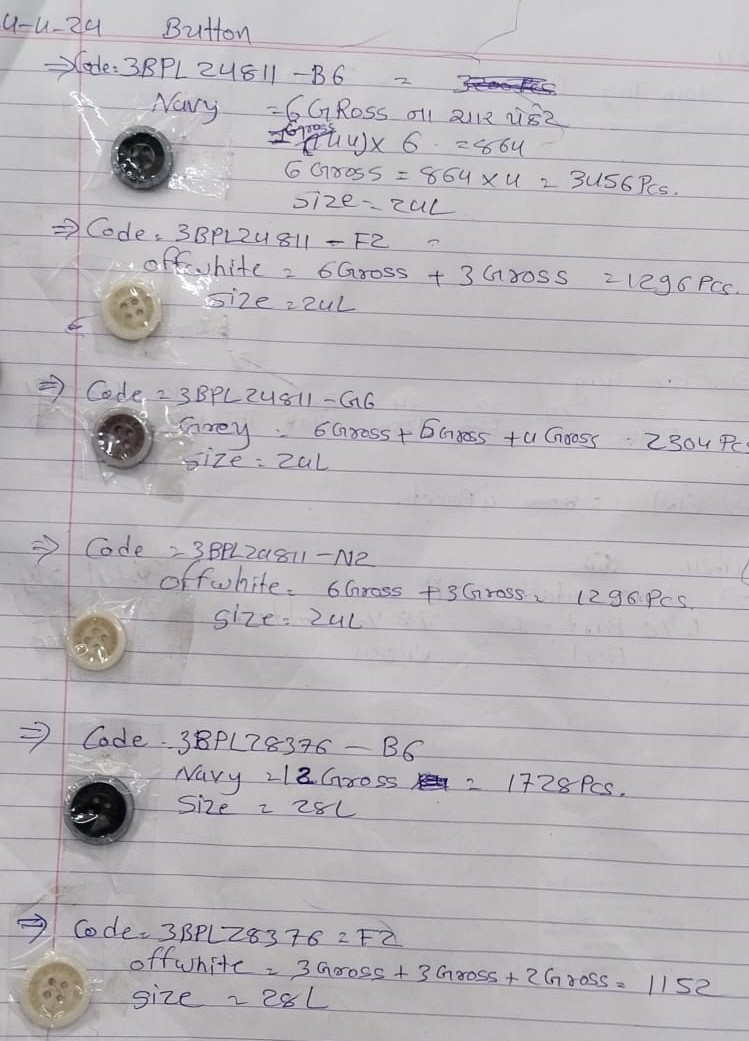 4-4-24 Button
⇒ Code: 3BPL24811 - B6 =
Navy = 6 GRoss ના ચાર પેકેટ
(144) × 6 = 864
6 Gross = 864 × 4 = 3456 Pcs.
Size = 24L
⇒ Code = 3BPL24811 - F2 =
offwhite = 6 Gross + 3 Gross = 1296 Pcs.
Size = 24L
⇒ Code = 3BPL24811 - G6
Grey = 6 Gross + 6 Gross + 4 Gross = 2304 Pcs
Size = 24L
⇒ Code = 3BPL24811 - N2
offwhite = 6 Gross + 3 Gross = 1296 Pcs.
Size = 24L
⇒ Code = 3BPL28376 - B6
Navy = 12 Gross = 1728 Pcs.
Size = 28L
⇒ Code = 3BPL28376 = F2
offwhite = 3 Gross + 3 Gross + 2 Gross = 1152
Size = 28L